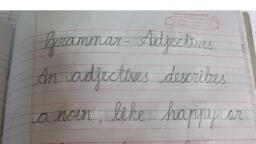 Grammar - Adjectives
An adjectives describes
a noun, like happy or